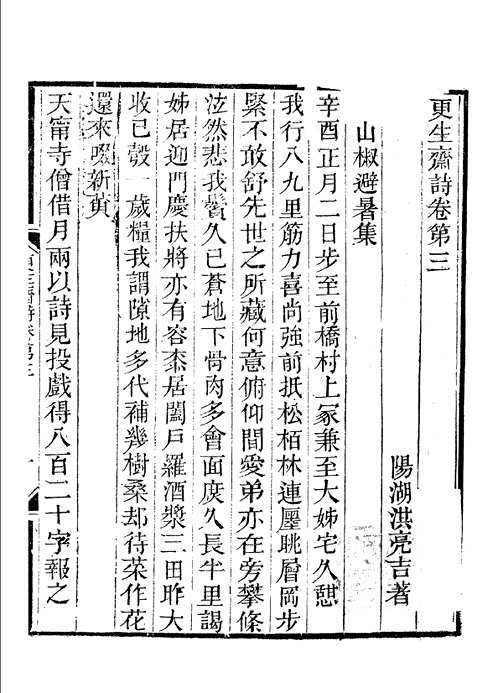 更生齋詩卷第三
陽湖洪亮吉著
山椒避暑集
辛酉正月二日步至前橋村上冢兼至大姊宅久憇
我行八九里筋力喜尚強前抵松栢林連壓眺層岡步
緊不敢舒先世之所藏何意俯仰間愛弟亦在旁攀條
泣然悲我鬢久已蒼地下骨肉多會面庻久長半里謁
姊居迎門慶扶將亦有容柰居闔戸羅酒漿三田昨大
收已榖一歲糧我謂隙地多代補幾樹桑却待菜作花
還來啜新黄
天甯寺僧借月兩以詩見投戲得八百二十字報之